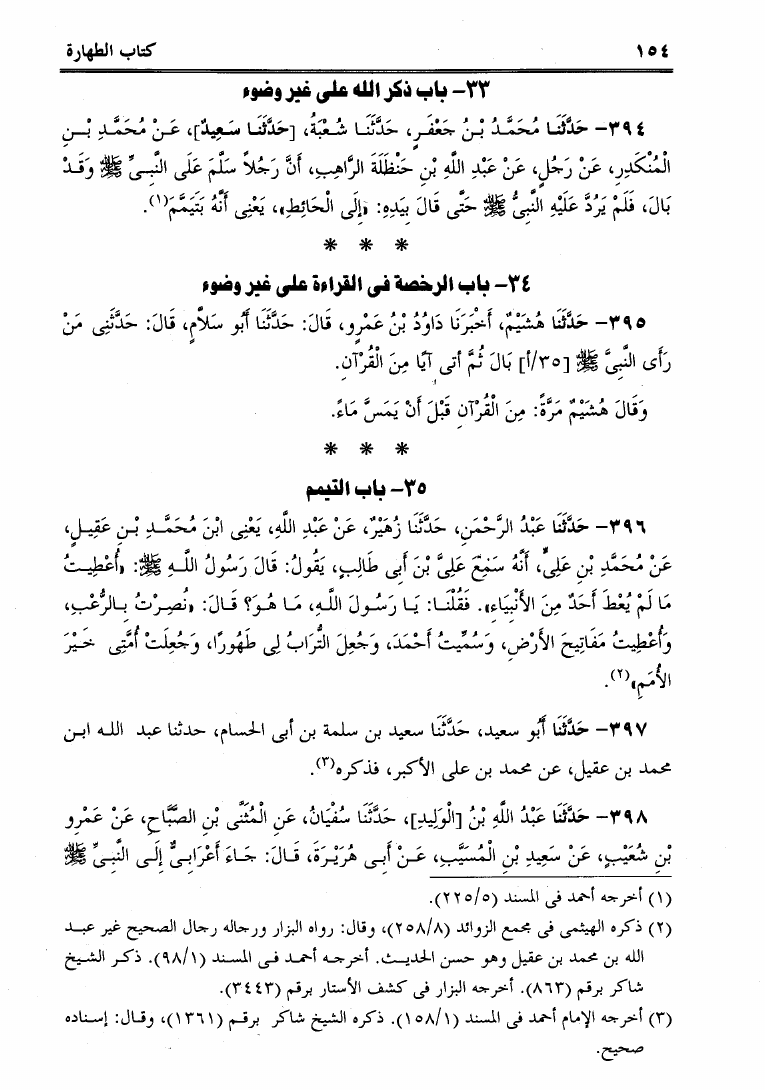 ١٥٤ كتاب الطهارة
٣٣- باب ذكر الله على غير وضوء
٣٩٤- حَدَّثَنَا مُحَمَّدُ بْنُ جَعْفَرٍ، حَدَّثَنَا شُعْبَةُ، [حَدَّثَنَا سَعِيدٌ]، عَنْ مُحَمَّدِ بْنِ
الْمُنْكَدِرِ، عَنْ رَجُلٍ، عَنْ عَبْدِ اللَّهِ بْنِ حَنْظَلَةَ الرَّاهِبِ، أَنَّ رَجُلاً سَلَّمَ عَلَى النَّبِىِّ ﷺ وَقَدْ
بَالَ، فَلَمْ يَرُدَّ عَلَيْهِ النَّبِىُّ ﷺ حَتَّى قَالَ بِيَدِهِ: «إِلَى الْحَائِطِ»، يَعْنِى أَنَّهُ يَتَيَمَّمَ(١).
* * *
٣٤- باب الرخصة فى القراءة على غير وضوء
٣٩٥- حَدَّثَنَا هُشَيْمٌ، أَخْبَرَنَا دَاوُدُ بْنُ عَمْرٍو، قَالَ: حَدَّثَنَا أَبُو سَلاَّمٍ، قَالَ: حَدَّثَنِى مَنْ
رَأَى النَّبِىَّ ﷺ [٣٥/أ] بَالَ ثُمَّ أتى آيًا مِنَ الْقُرْآنِ.
وَقَالَ هُشَيْمٌ مَرَّةً: مِنَ الْقُرْآنِ قَبْلَ أَنْ يَمَسَّ مَاءً.
* * *
٣٥- باب التيمم
٣٩٦- حَدَّثَنَا عَبْدُ الرَّحْمَنِ، حَدَّثَنَا زُهَيْرٌ، عَنْ عَبْدِ اللَّهِ، يَعْنِى ابْنَ مُحَمَّدِ بْنِ عَقِيلٍ،
عَنْ مُحَمَّدِ بْنِ عَلِىٍّ، أَنَّهُ سَمِعَ عَلِىَّ بْنَ أَبِى طَالِبٍ، يَقُولُ: قَالَ رَسُولُ اللَّهِ ﷺ: «أُعْطِيتُ
مَا لَمْ يُعْطَ أَحَدٌ مِنَ الأَنْبِيَاءِ». فَقُلْنَا: يَا رَسُولَ اللَّهِ، مَا هُوَ؟ قَالَ: «نُصِرْتُ بِالرُّعْبِ،
وَأُعْطِيتُ مَفَاتِيحَ الأَرْضِ، وَسُمِّيتُ أَحْمَدَ، وَجُعِلَ التُّرَابُ لِى طَهُورًا، وَجُعِلَتْ أُمَّتِى خَيْرَ
الأُمَمِ»(٢).
٣٩٧- حَدَّثَنَا أَبُو سعيد، حَدَّثَنَا سعيد بن سلمة بن أبى الحسام، حدثنا عبد الله ابن
محمد بن عقيل، عن محمد بن على الأكبر، فذكره(٣).
٣٩٨- حَدَّثَنَا عَبْدُ اللَّهِ بْنُ [الْوَلِيدِ]، حَدَّثَنَا سُفْيَانُ، عَنِ الْمُثَنَّى بْنِ الصَّبَّاحِ، عَنْ عَمْرِو
بْنِ شُعَيْبٍ، عَنْ سَعِيدِ بْنِ الْمُسَيَّبِ، عَنْ أَبِى هُرَيْرَةَ، قَالَ: جَاءَ أَعْرَابِىٌّ إِلَى النَّبِىِّ ﷺ
(١) أخرجه أحمد فى المسند (٢٢٥/٥).
(٢) ذكره الهيثمى فى مجمع الزوائد (٢٥٨/٨)، وقال: رواه البزار ورجاله رجال الصحيح غير عبد
الله بن محمد بن عقيل وهو حسن الحديث. أخرجه أحمد فى المسند (٩٨/١). ذكر الشيخ
شاكر برقم (٨٦٣). أخرجه البزار فى كشف الأستار برقم (٣٤٤٣).
(٣) أخرجه الإمام أحمد فى المسند (١٥٨/١). ذكره الشيخ شاكر برقم (١٣٦١)، وقال: إسناده
صحيح.